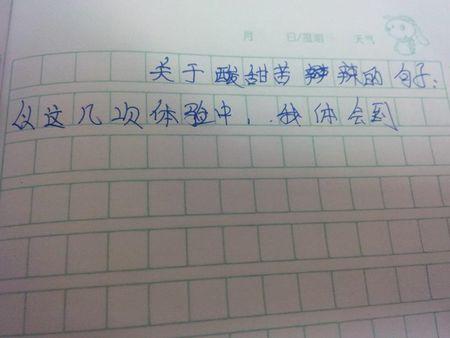 月 日/星期 天气
关于酸甜苦辣的句子：
从这几次体验中，我体会到